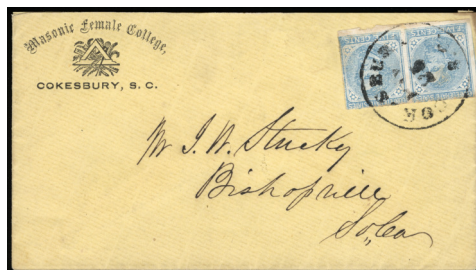 Masonic Female College,
COKESBURY, S. C.
Mr J. W. Stucky
Bishopville
So,, Ca